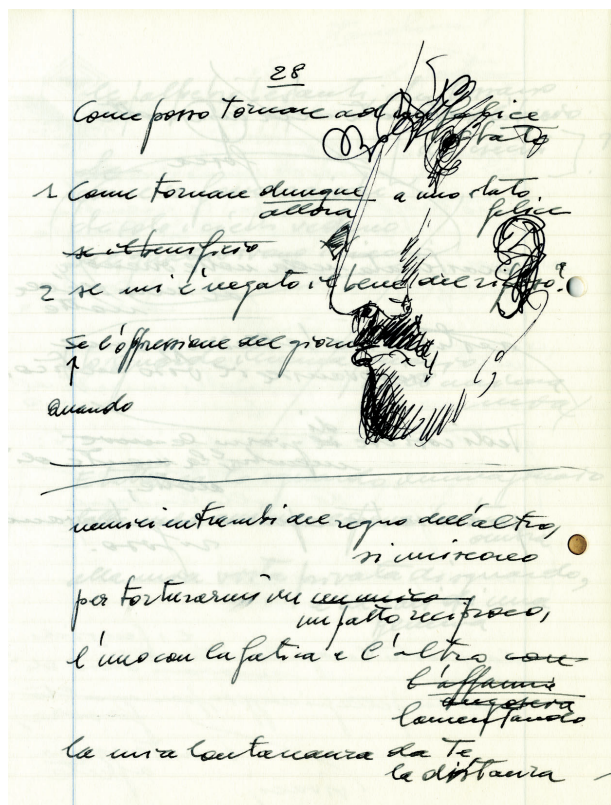 28
Come posso tornare ad felice
stato
1 Come tornare dunque a uno stato
allora felice
se il beneficio
2 se mi è negato il bene del riposo?
Se l'oppressione del giorno
Quando
nemici entrambi del regno dell'altro,
si uniscono
per torturarmi in un unico
un patto reciproco,
l'uno con la fatica e l'altro con
l'affanno
lamentando
la mia lontananza da Te
la distanza